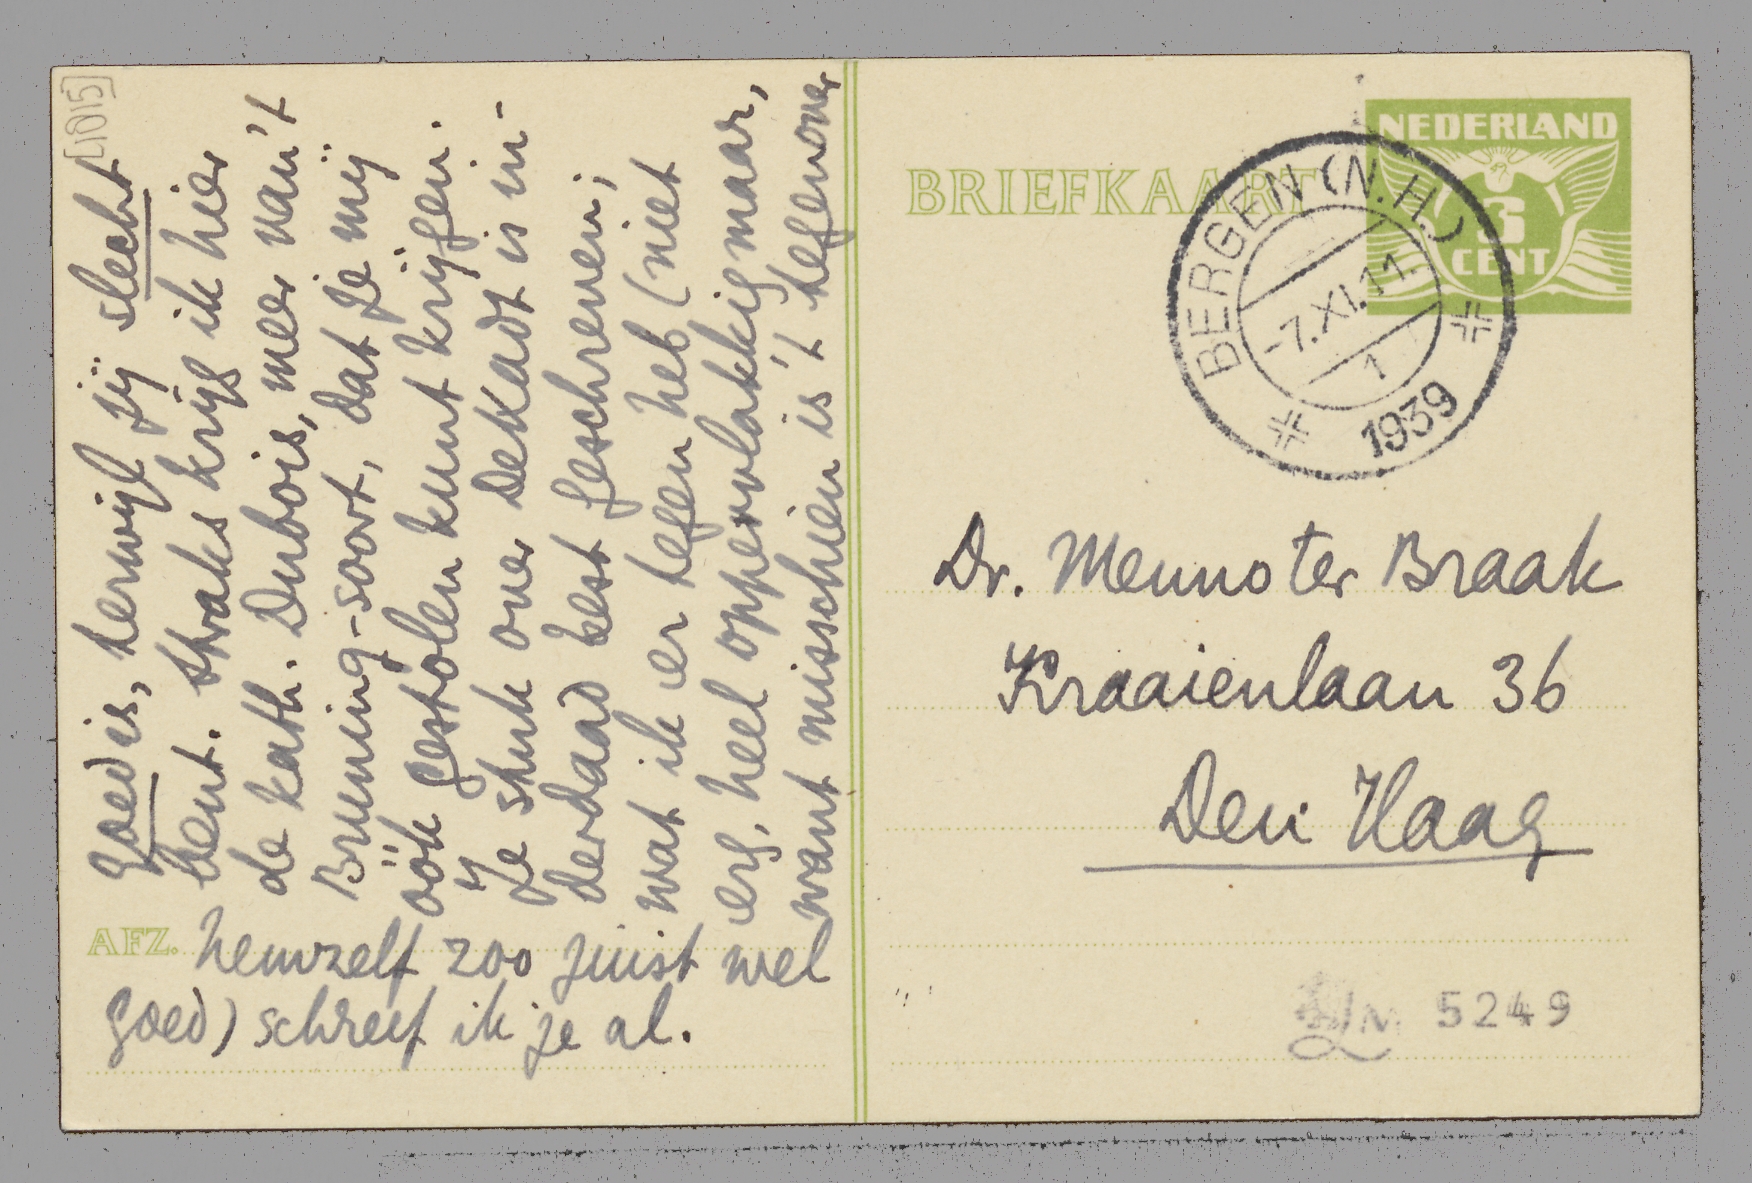 [1015]
goed is, terwijl jij slecht
bent. Straks krijg ik hier
de kath. Dubois, meer van 't
Bruning-soort, dat je mij
óók gestolen kunt krijgen.
Je stuk over Dekadt is in-
derdaad best geschreven;
wat ik er tegen heb (niet
erg, heel oppervlakkig maar,
want misschien is 't tegenover
AFZ. hemzelf zoo juist wel
goed) schreef ik je al.
BRIEFKAART
NEDERLAND
3
CENT
BERGEN (N.H.)
-7.XI.11.
1
1939
Dr. Menno ter Braak
Kraaienlaan 36
Den Haag
LM 5249